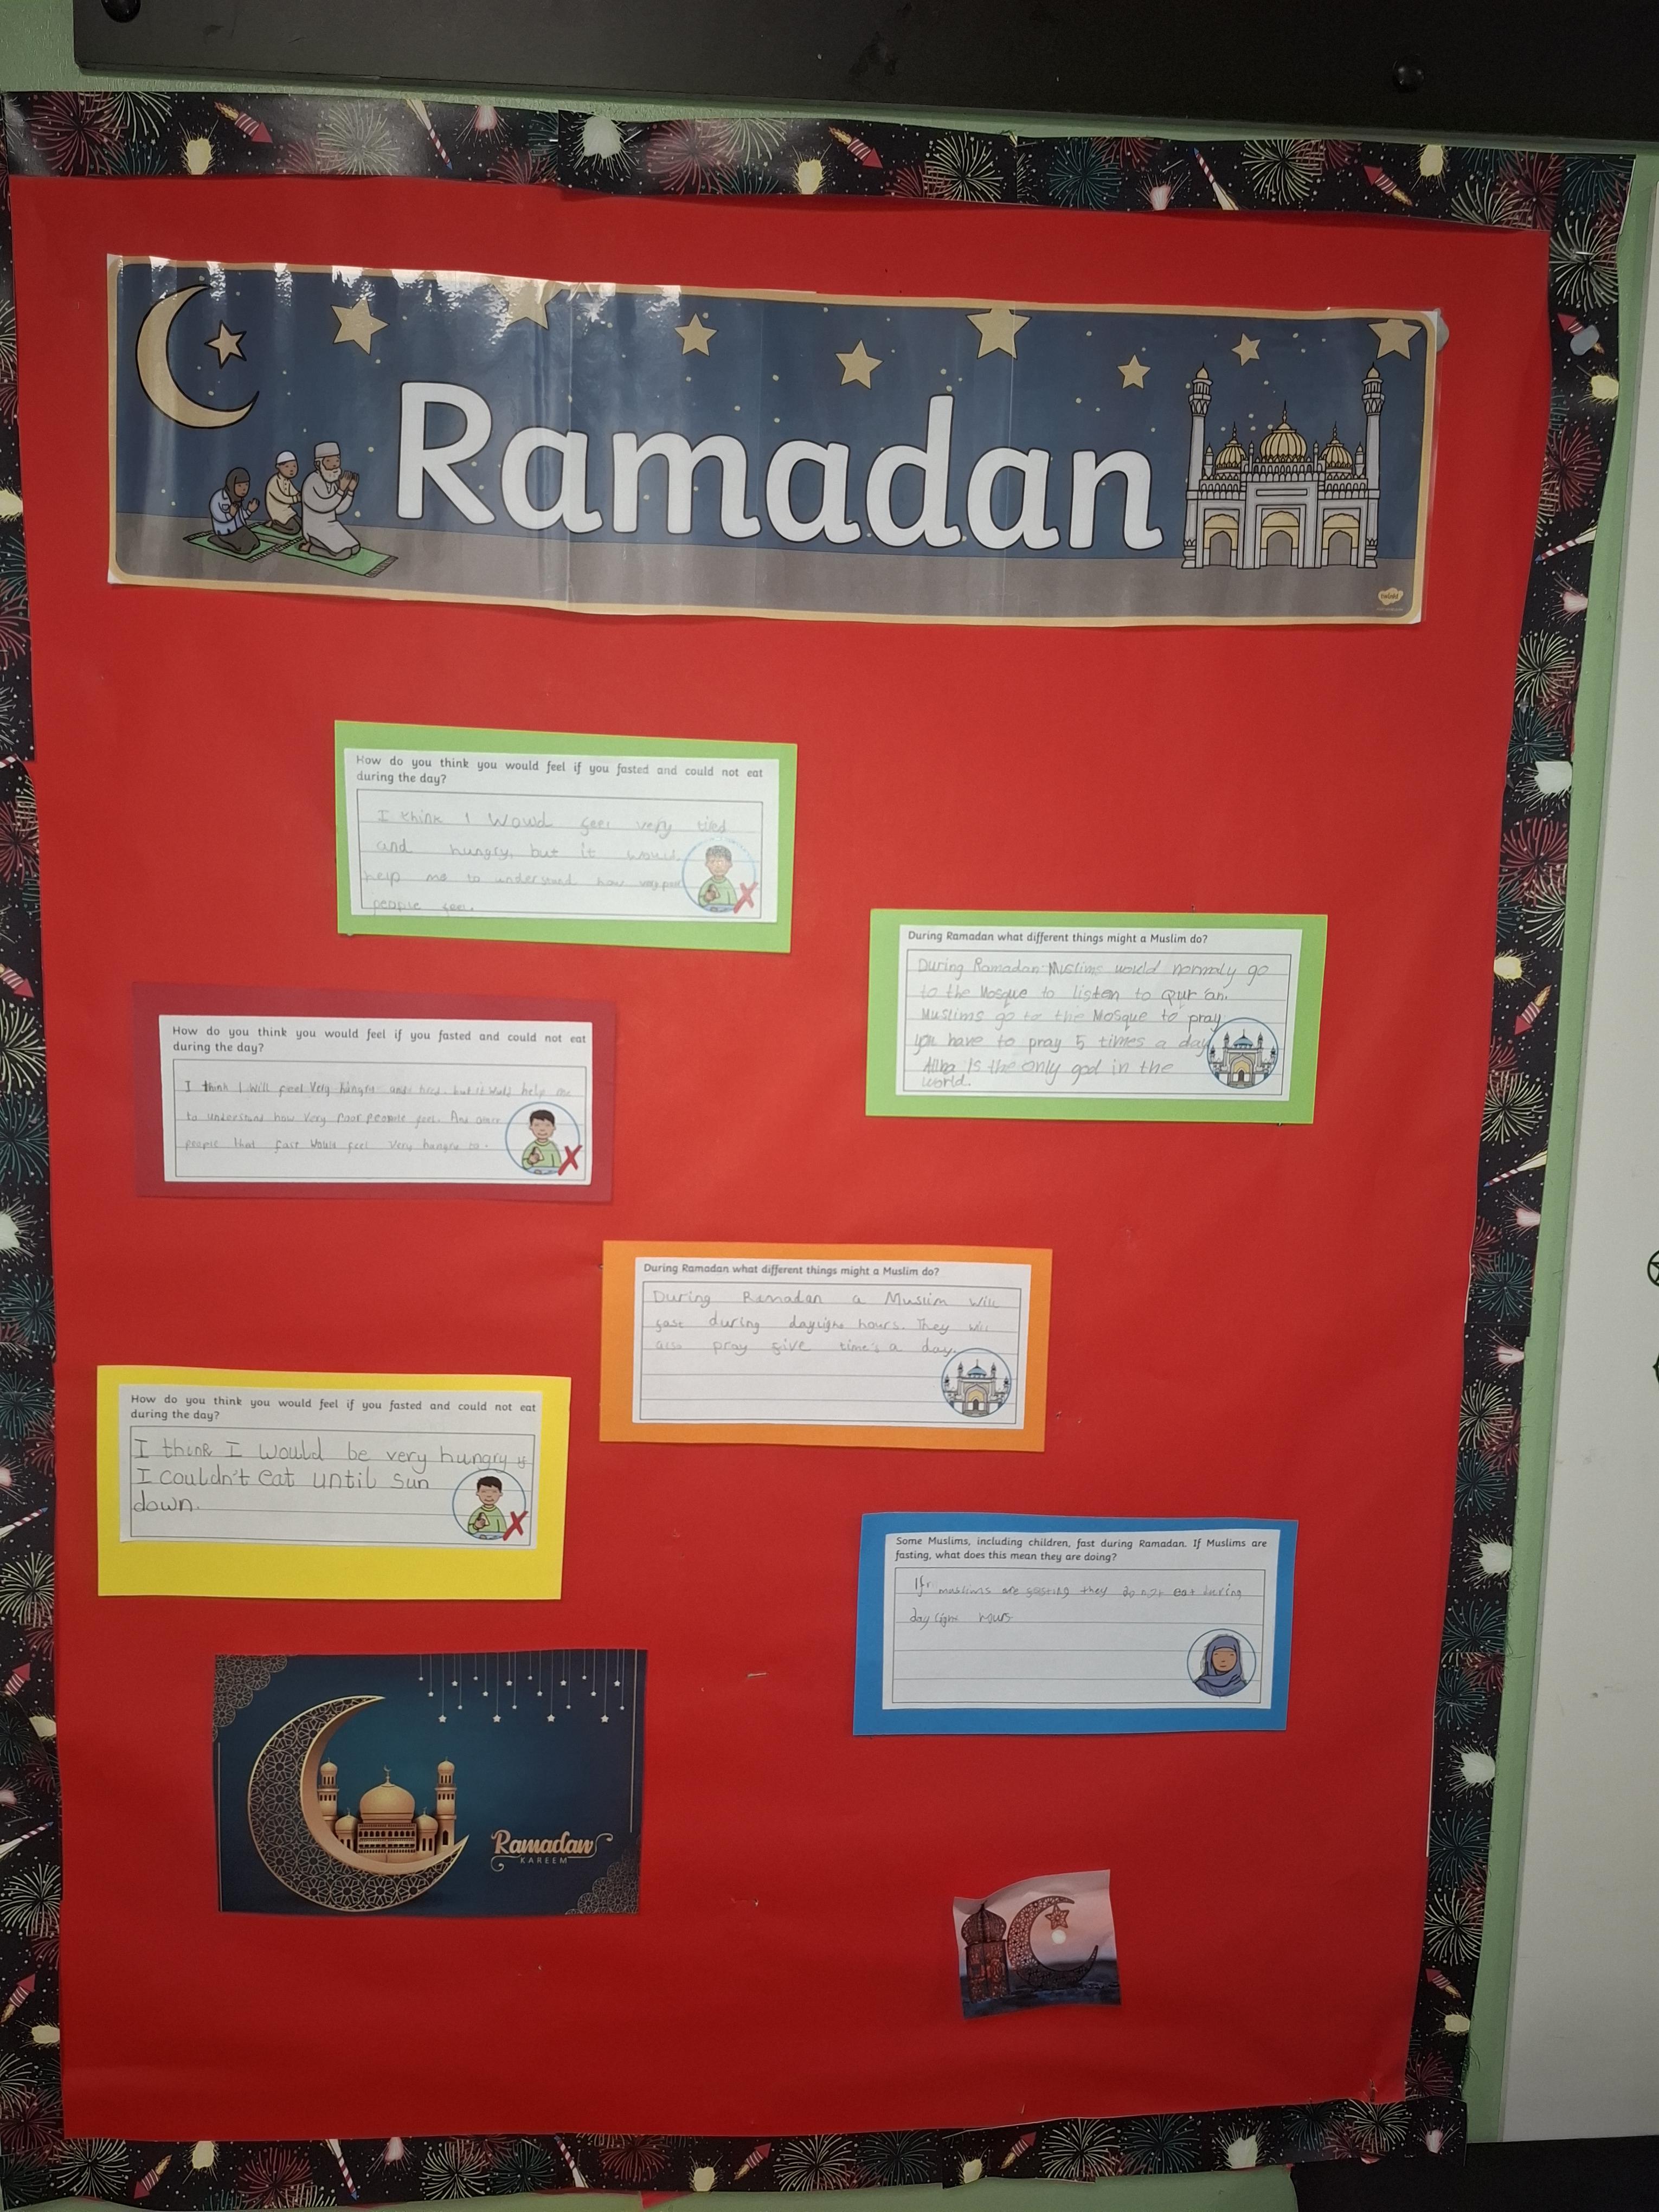 Ramadan
twinkl
How do you think you would feel if you fasted and could not eat
during the day?
I think I Would feel very tired
and hungry, but it would
help me to understand how very poor
people feel.
During Ramadan what different things might a Muslim do?
During Ramadan Muslims would normaly go
to the Mosque to listen to Qur'an.
Muslims go to the Mosque to pray
you have to pray 5 times a day
is the only god in the
world.
How do you think you would feel if you fasted and could not eat
during the day?
I think I will feel Very hungry and tired. but it would help me
to understand how Very Poor people feel. And
people that fast would feel Very hungry to.
During Ramadan what different things might a Muslim do?
During Ramadan a Muslim will
fast during daylight hours. They will
also pray five time's a day.
How do you think you would feel if you fasted and could not eat
during the day?
I think I would be very hungry if
I couldn't eat until sun
down.
Some Muslims, including children, fast during Ramadan. If Muslims are
fasting, what does this mean they are doing?
If muslims are fasting they do not eat during
day light hours
Ramadan
KAREEM